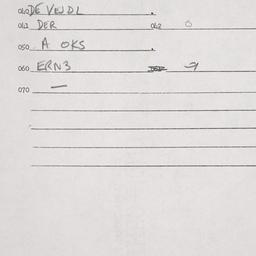 040 DE VEJDL .
041 DER 042 0
050 A OKS .
060 ERN3 7
070 —